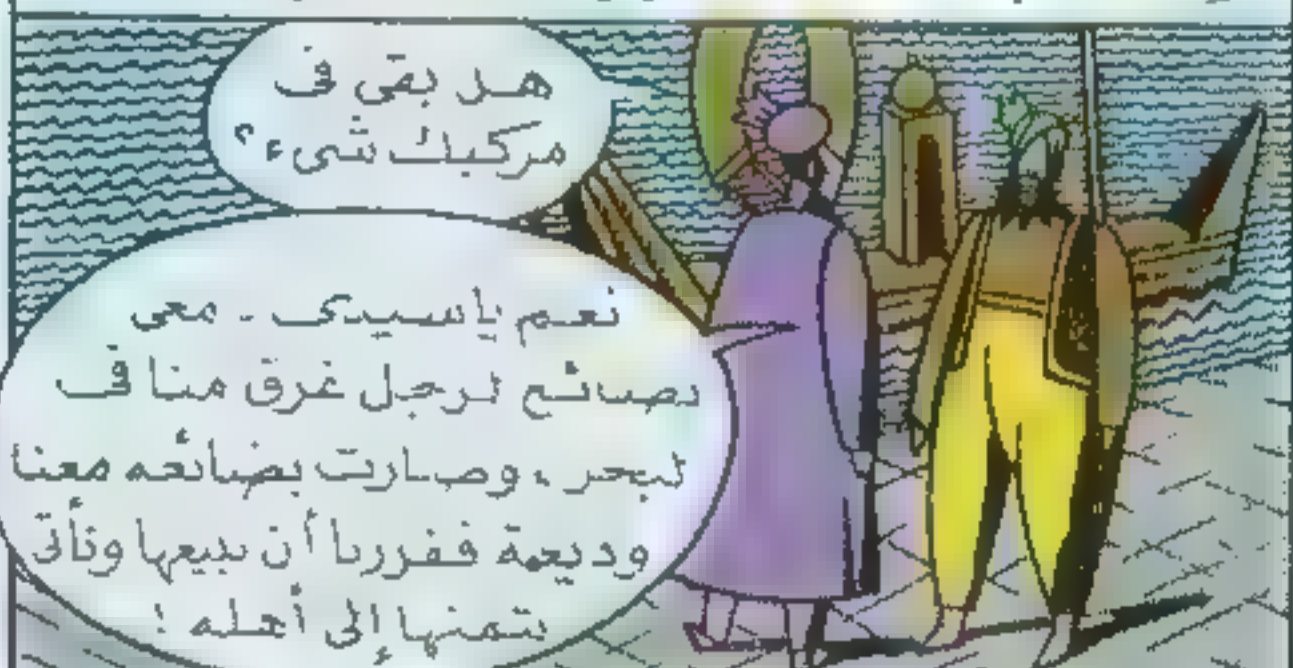 هل بقى فى
مركبك شىء؟
نعم ياسيدى - معى
بضائع لرجل غرق منا فى
لبحر ، وصارت بضائعه معنا
وديعة فقررنا أن نبيعها ونأتى
بثمنها إلى أهله !